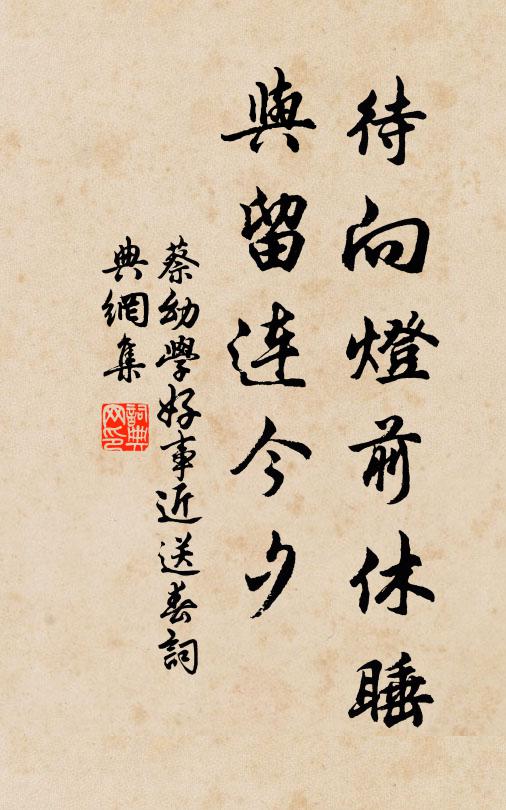 待向燈前休睡
與留連今夕
蔡幼學好事近送春詞
典網集
詞典
网印